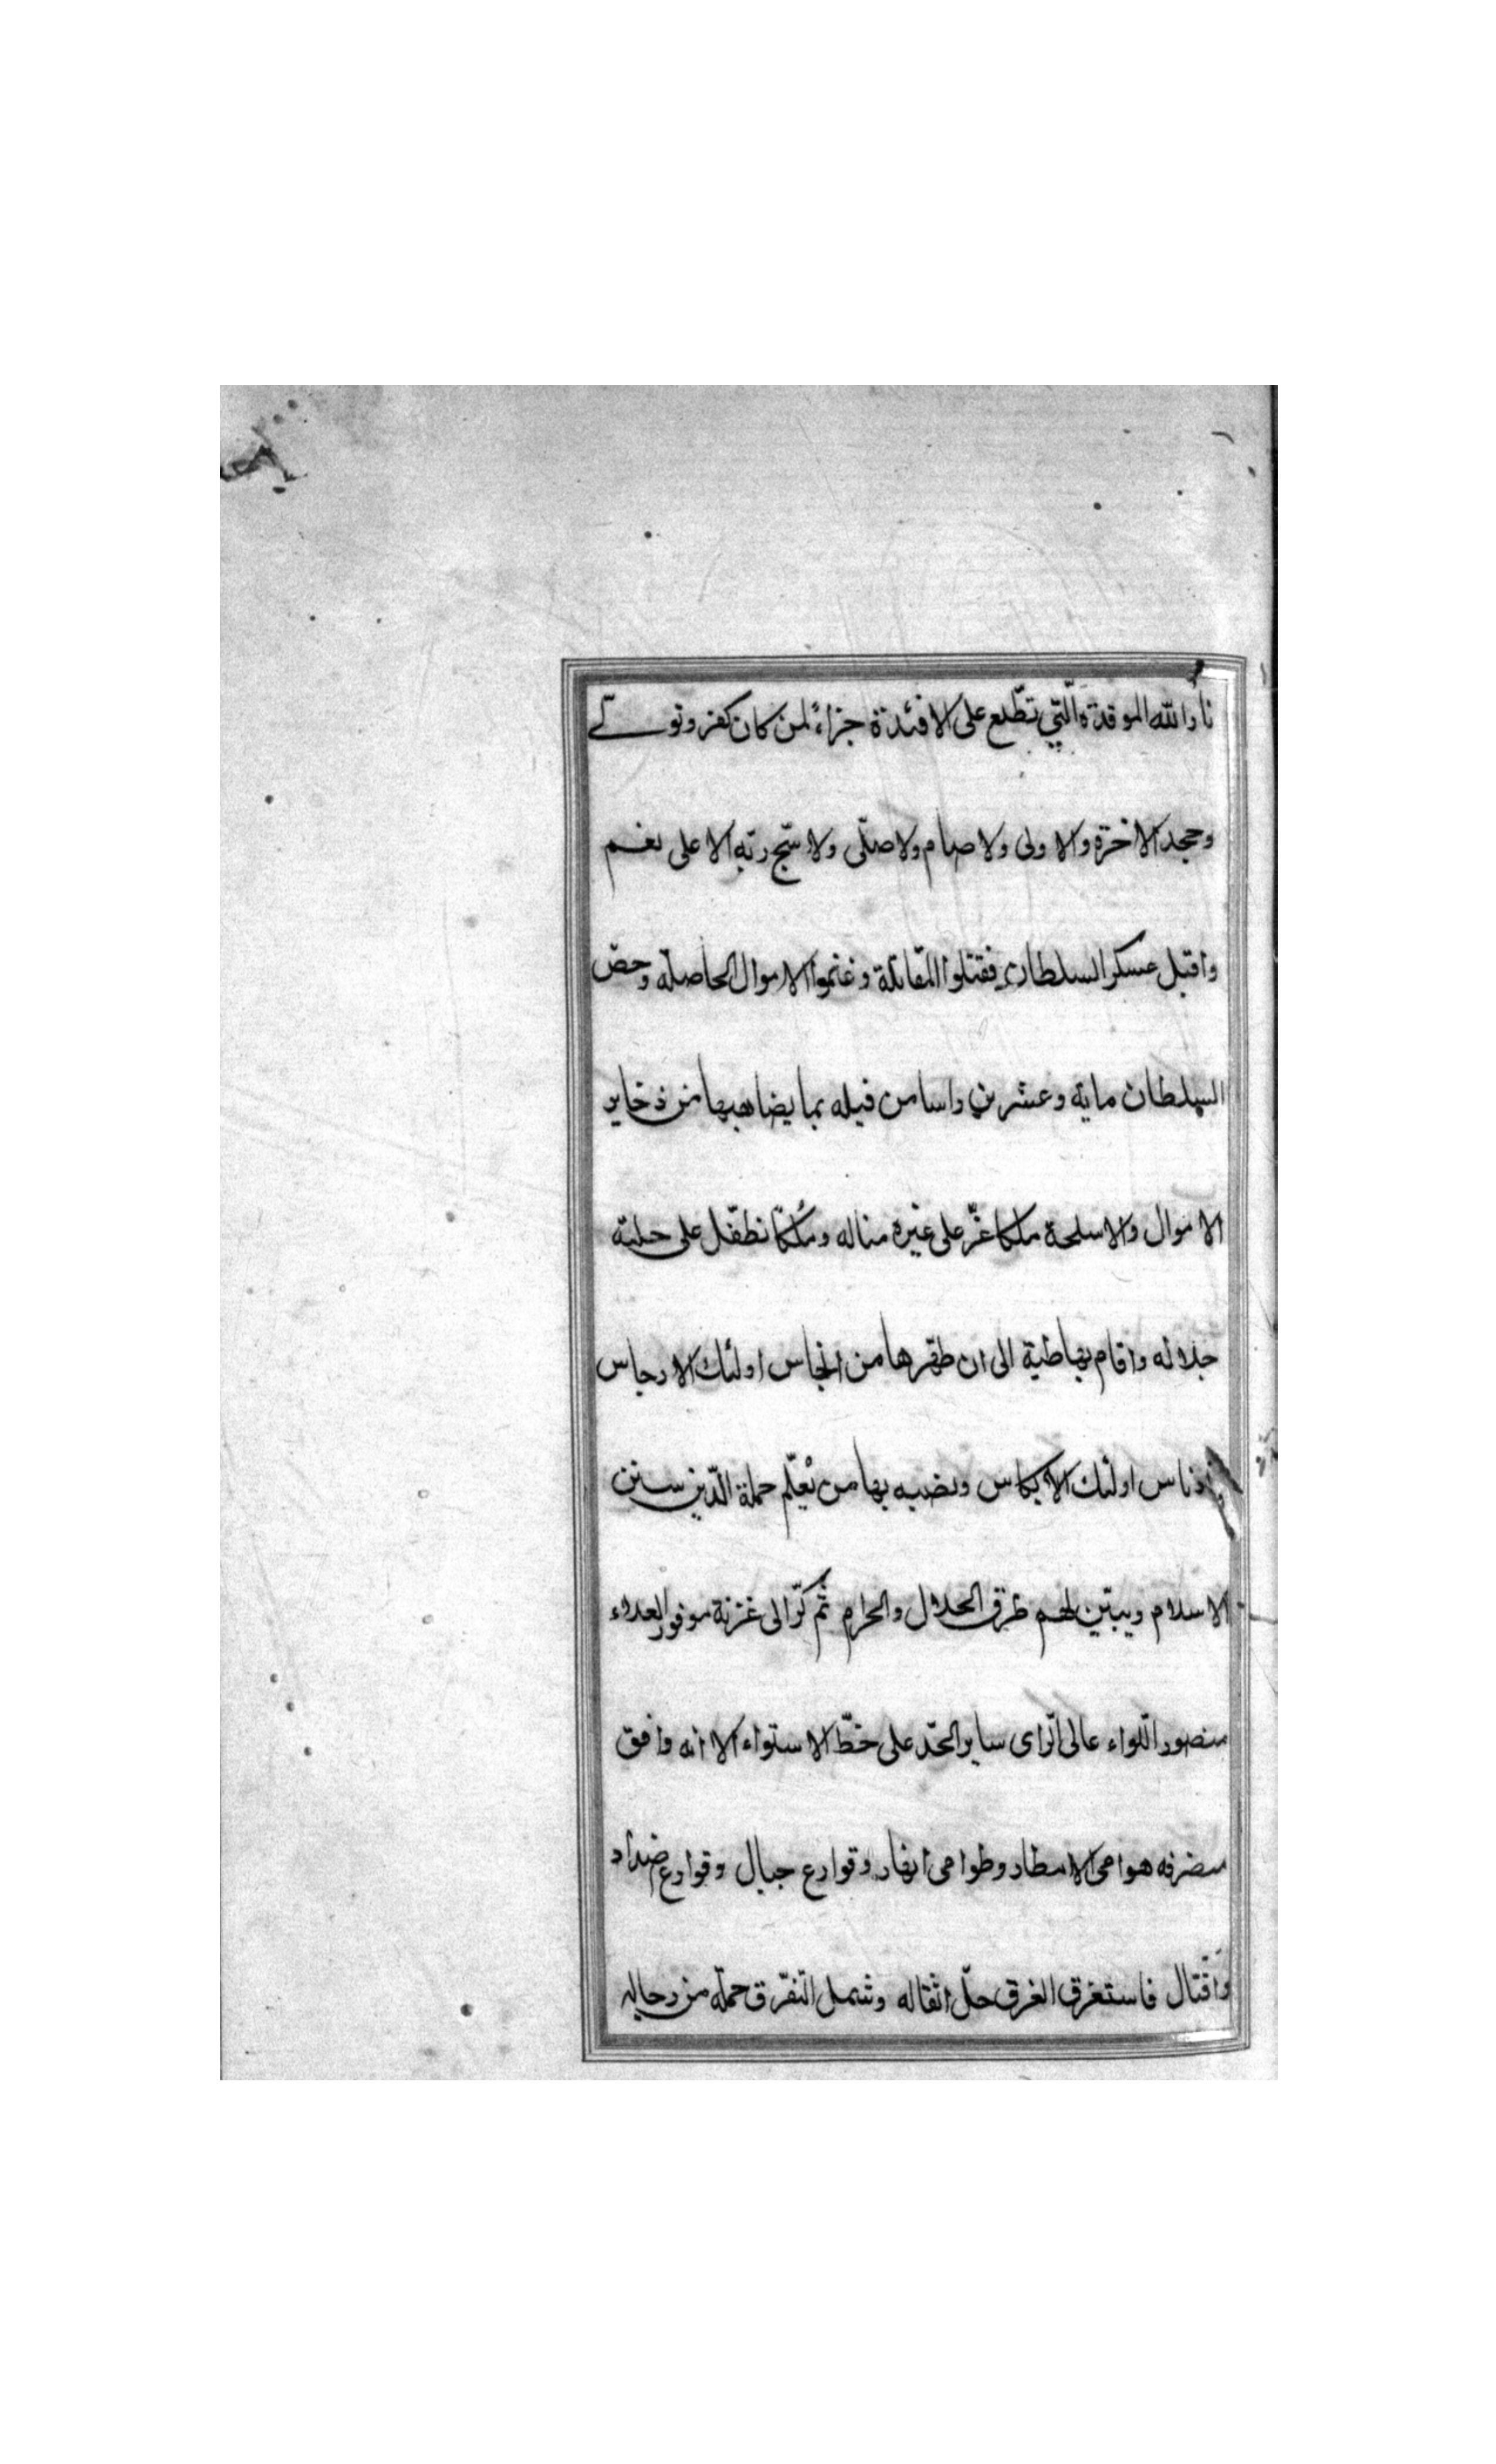 نار الله الموقدة الّتي تطّلع على الافئدة جزاءً لمن كان كفر وتولى
وجحد الاخرة والاولى ولا صام ولا صلّى ولا سبّح ربّه الاعلى نعم
واقبل عسكر السلطان فقتلوا المقاتلة وغنموا الاموال الحاصلة وخصّ
السلطان ماية وعشرين راسا من فيله بما يضاهيها من ذخاير
الاموال والاسلحة ملكا عزّ على غيره مناله ومُلكًا تطفّل على حليته
جلاله واقام بهاطية الى ان طهّرها من انجاس اولئك الارجاس
ادناس اولئك الانكاس ونصب بها من يُعلّم حملة الدّين سنن
الاسلام ويبيّن لهم طرق الحلال والحرام ثم كرّ الى غزنة موفور العلاء
منصور اللواء عالى الراى ساير الجدّ على خطّ الاستواء الا انه وافق
منصرفه هوامى الامطار وطوامى انهار وقوارع جبال وقوارع
واقتال فاستغرق الغرق جلّ اثقاله وشمل التفرّق جملة من رجاله